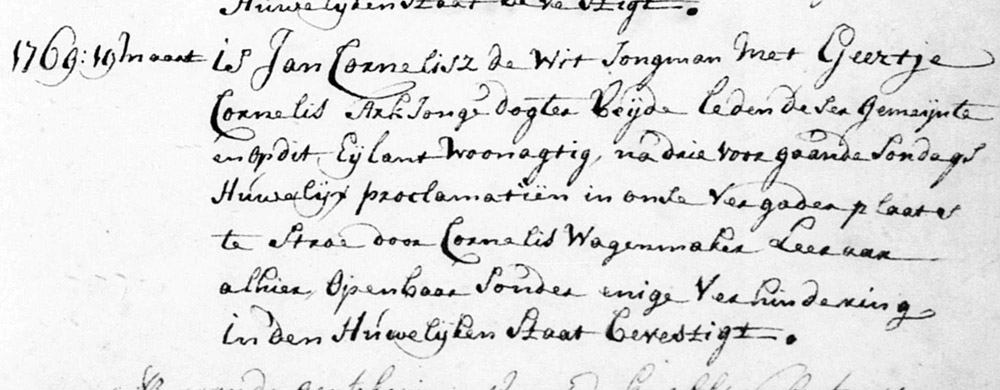 Huwelijken Staat bevestigt.
1769: 19 maart is Jan Cornelisz de Wit Jongman Met Geertje
Cornelis Ark Jonge dogter Beijde leden deser Gemeijnte
en op dit Eijlant Woonagtig, na drie voor gaande Sondags
Huwelijx proclamatiën in onse Vergader plaats
te Stroe door Cornelis Wagenmaker Leeraar
alhier, Openbaar Sonder enige Verhindering
in den Huwelijken Staat bevestigt.